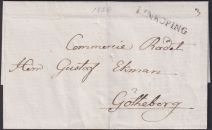 LINKÖPING
Commercie Rådet
Herr Gustof Ekman
Götheborg